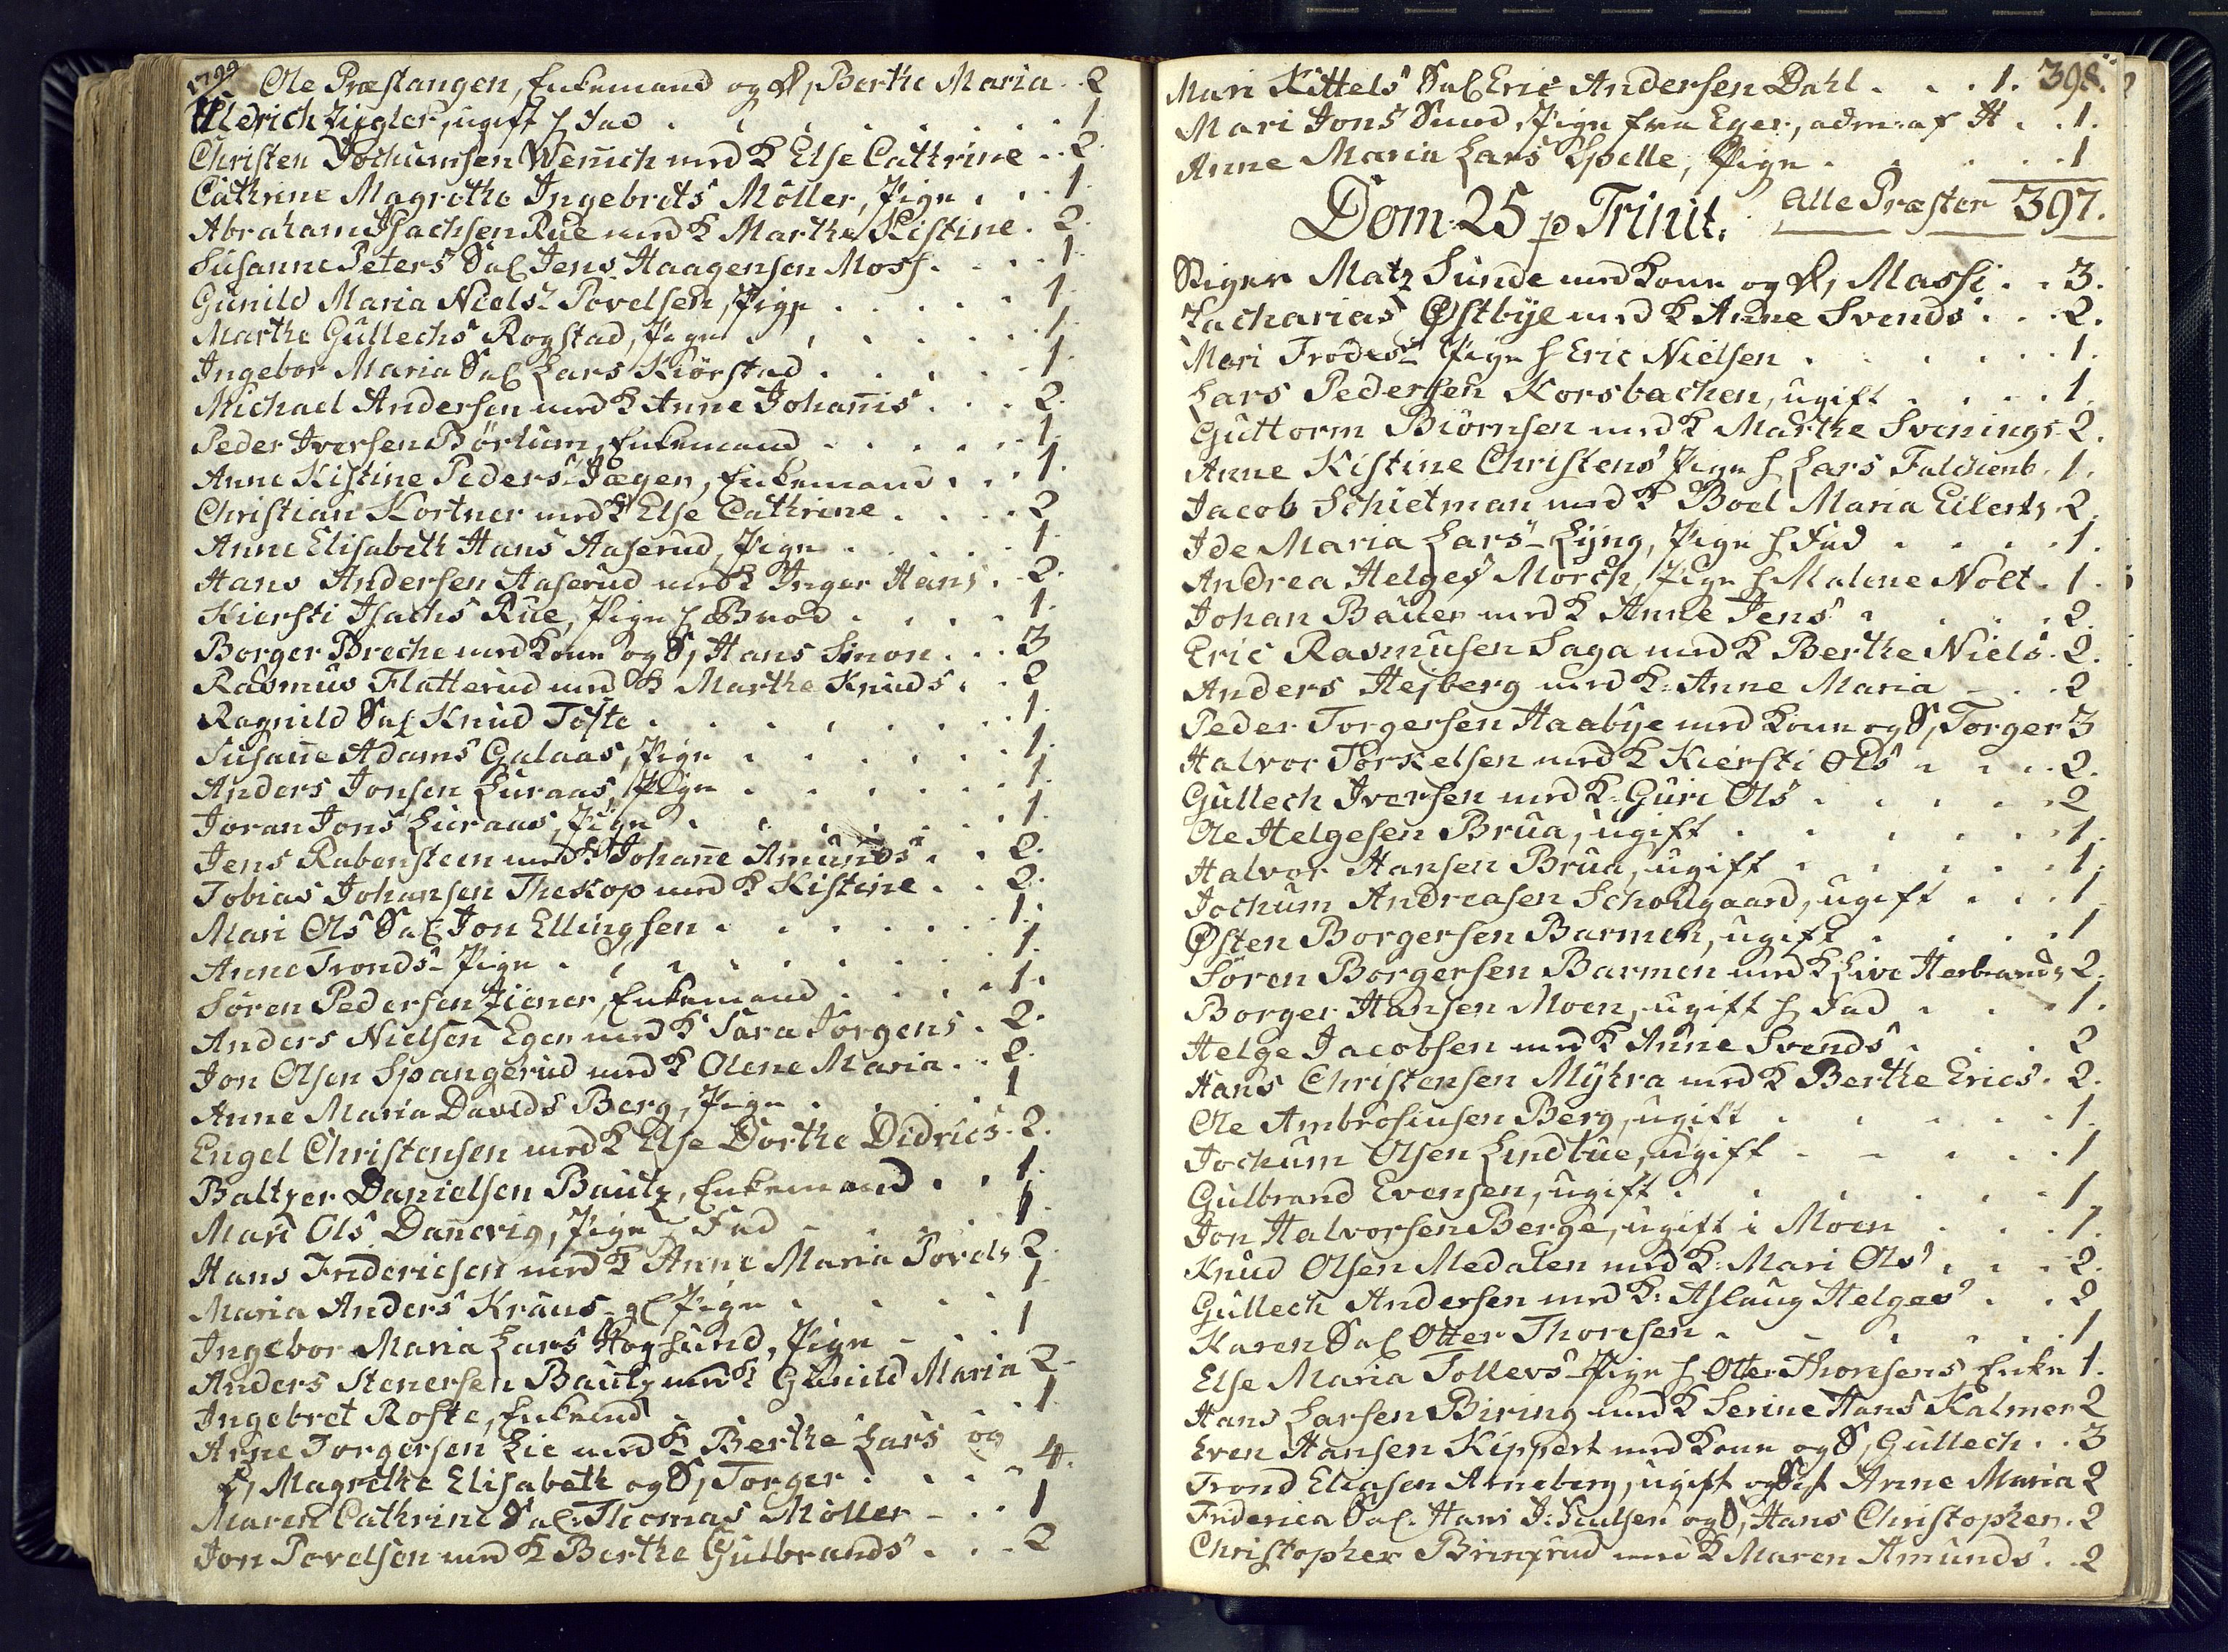 1799
Ole Præstangen, Enkemand og D, Berthe Maria . 2
Ulerich Ziegler, ugift h Fad . . . . 1
Christen Jochumsen Wenich med K Else Cathrine . . 2
Cathrine Magrethe Ingebrets Möller, Pige . . 1.
Abraham Isachsen Rue med K Marthe Kistine . 2.
Susanne Peters Sal Jens Haagensen Moss . . . 1.
Gunild Maria Niels Povelsen, Pige . . . . 1
Marthe Gullechs Rogstad, Pige . . . . 1.
Ingebor Maria Sal Lars Kiörstad . . . . 1.
Michael Andersen med K Anne Johannis . . . 2.
Peder Iversen Börtum, Enkemand . . . . 1.
Anne Kistine Peders Jæger, Enkemand . . . 1.
Christian Kortner med K Else Cathrine . . . . 2
Anne Elisabeth Hans Aaserud, Pige . . . . 1.
Hans Andersen Aaserud med K Inger Hans . . 2.
Kiersti Isachs Rue, Pige h Brod . . . . 1.
Borger Breche med Kone og S, Hans Simon . . . 3
Rasmus Flatterud med K Marthe Knuds . . 2
Ragnild Sal Knud Tofte . . . . . 1.
Susanne Adams Galaas, Pige . . . . . 1.
Anders Jonsen Luraas, Pige . . . . . 1.
Joran Jons Luraas, Pige . . . . . 1.
Jens Rabenstein med K Johanne Amunds . . 2.
Tobias Johansen Theskop med K Kistine . . 2.
Mari Ols Sal Jon Ellingsen . . . . . 1.
Anne Tronds Pige . . . . . . 1.
Sören Pedersen Ziener, Enkemand . . . . 1.
Anders Nielsen Eger med K Sara Jörgens . 2.
Jon Olsen Spangerud med K Olene Maria . . 2.
Anne Maria Davids Berg, Pige . . . . 1
Engel Christensen med K Else Dorthe Didrics . 2.
Baltzer Danielsen Bautz, Enkemand . . 1.
Mari Ols Dannevig, Pige h Fad . . . 1.
Hans Fridericsen med K Anne Maria Povels 2.
Maria Anders Kraus gl Pige . . . . 1
Ingebor Maria Lars Hogsund, Pige . . . 1
Anders Stenersen Bautz med K Gunild Maria 2.
Ingebret Roste, Enkemd . . . . . 1.
Arne Torgersen Lie med K Berthe Lars og
D, Magrethe Elisabeth og S, Torger . . . . 4.
Maren Cathrine Sal. Thomas Möller . . . 1
Jon Povelsen med K Berthe Gulbrands . . . 2
398.
Mari Kittels Sal Eric Andersen Dahl . . . 1.
Mari Jons Sund, Pige fra Eger, adm: af H . . 1.
Anne Maria Lars Spelle, Pige . . . . . 1
Dom: 25 p Trinit. Alle Præster 397.
Steiger Matz Sunde med Kone og D, Massi . . 3.
Zacharias Østbye med K Anne Svends . . . 2.
Mari Trodes Pige h Eric Nielsen . . . . . 1.
Lars Pedersen Korsbachen, ugift . . . . 1.
Guttorm Biörnsen med K Marthe Svenings 2.
Anne Kistine Christens Pige h Lars Faldienb. 1.
Jacob Schietman med K Boel Maria Eilerts 2.
Ide Maria Lars Lyng, Pige h Fad . . . . 1.
Andrea Helges Mörch, Pige h Malene Nolt . 1.
Johan Bauer med K Anne Jens . . . . 2.
Eric Rasmusen Saga med K Berthe Niels . 2.
Anders Hejberg med K: Anne Maria . . . 2
Peder Torgersen Haabye med Kone og S, Torger 3
Halvor Torkelsen med K Kiersti Ols . . . . 2.
Gullech Iversen med K: Guri Ols . . . . . 2
Ole Helgesen Brua, ugift . . . . . . 1.
Halvor Hansen Brua, ugift . . . . . 1.
Jochum Andreasen Schougaard, ugift . . . 1
Østen Borgersen Barmen, ugift . . . . 1
Sören Borgersen Barmen med K Live Herbrands 2.
Borger Hansen Moen, ugift h Fad . . . 1.
Helge Jacobsen med K Anne Svends . . . 2
Hans Christensen Myhra med K Berthe Erics . 2.
Ole Ambrosiusen Berg, ugift . . . . . 1.
Jochum Olsen Lindbue, ugift . . . . . 1
Gulbrand Evensen, ugift . . . . . . 1
Jon Halvorsen Berge, ugift i Moen . . . 1.
Knud Olsen Medalen med K: Mari Ols . . . 2.
Gullech Andersen med K: Aslaug Helges . . 2
Karen Sal Otter Thoresen . . . . . . 1
Else Maria Tollevs Pige h Otter Thoresens Enke 1.
Hans Larsen Biring med K Serine Hans Kalmer 2
Even Hansen Kippert med Kone og S, Gullech . . 3
Trond Eliasen Arneberg, ugift og Sist Anne Maria 2
Friderica Sal. Hans J: Paulsen og S, Hans Christopher . 2
Christopher Bringrud med K Maren Amunds . . 2